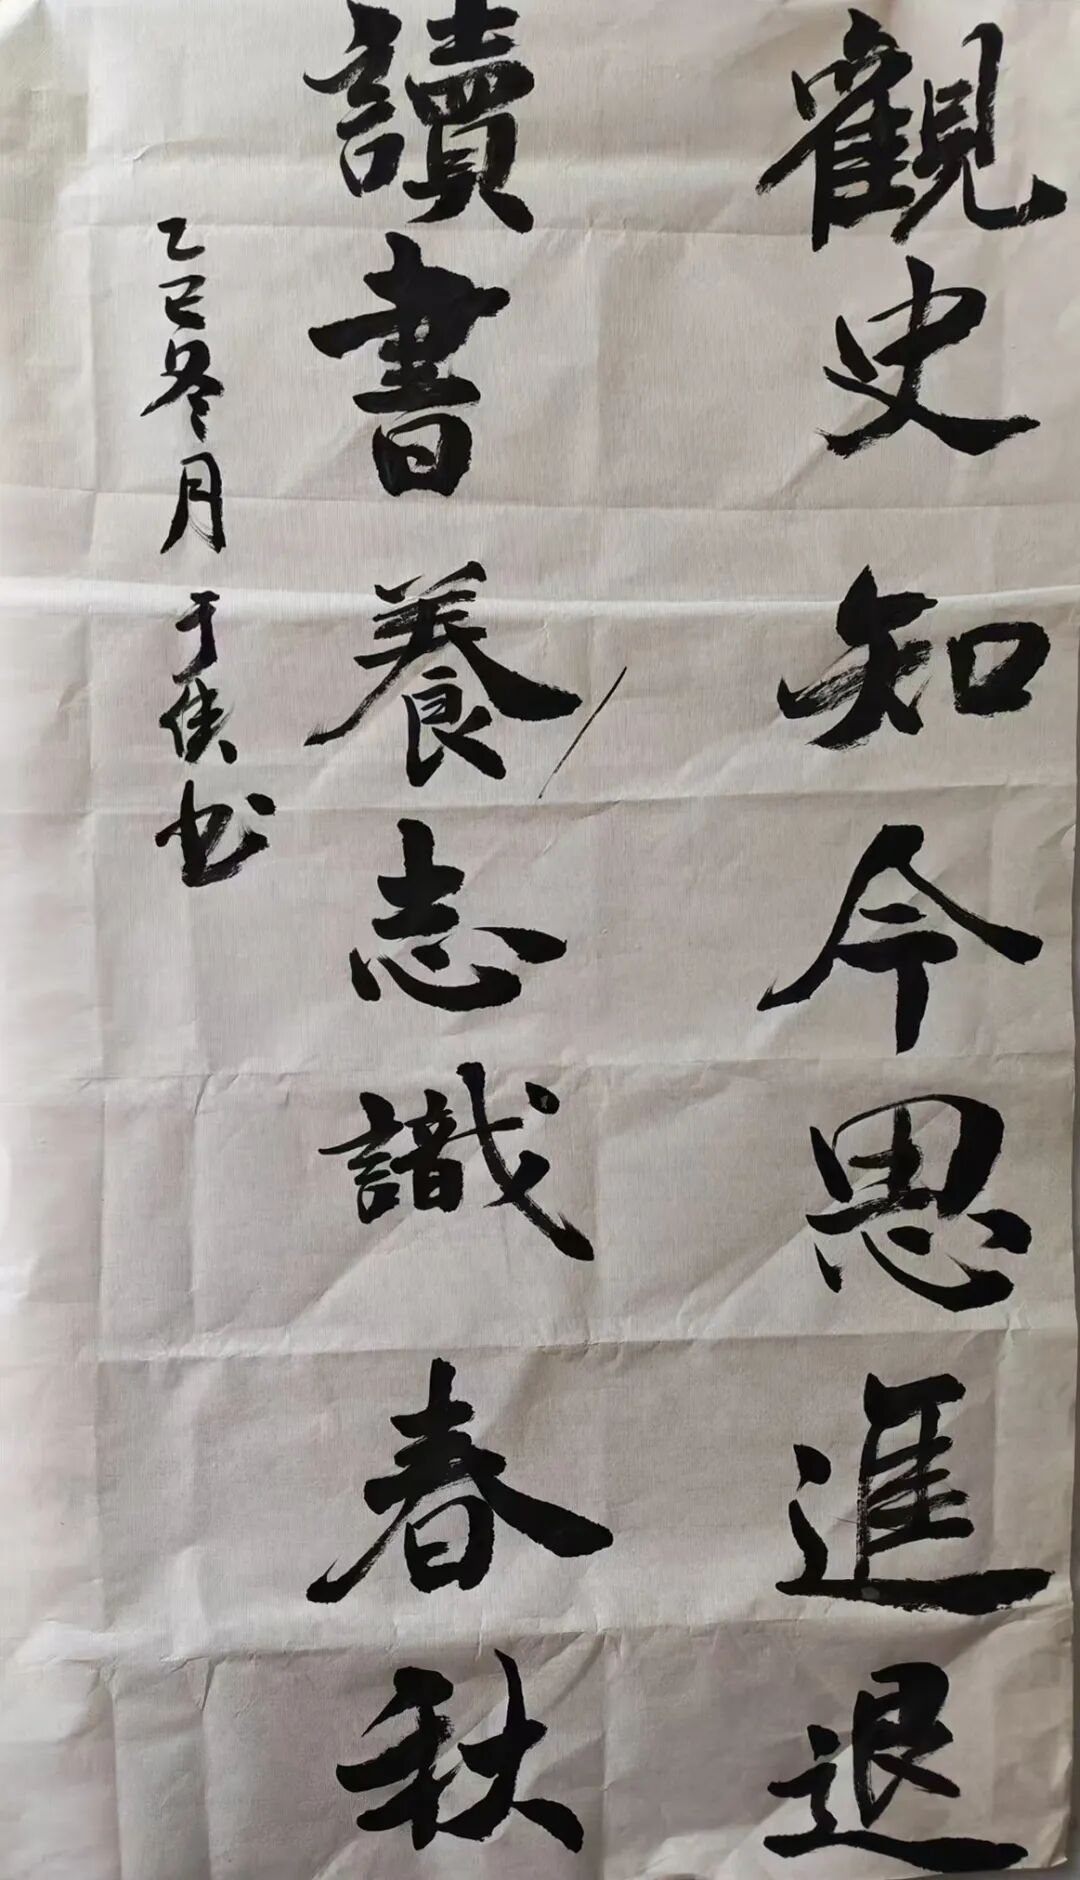 觀史知今思進退
讀書養志識春秋
乙巳冬月于俠书